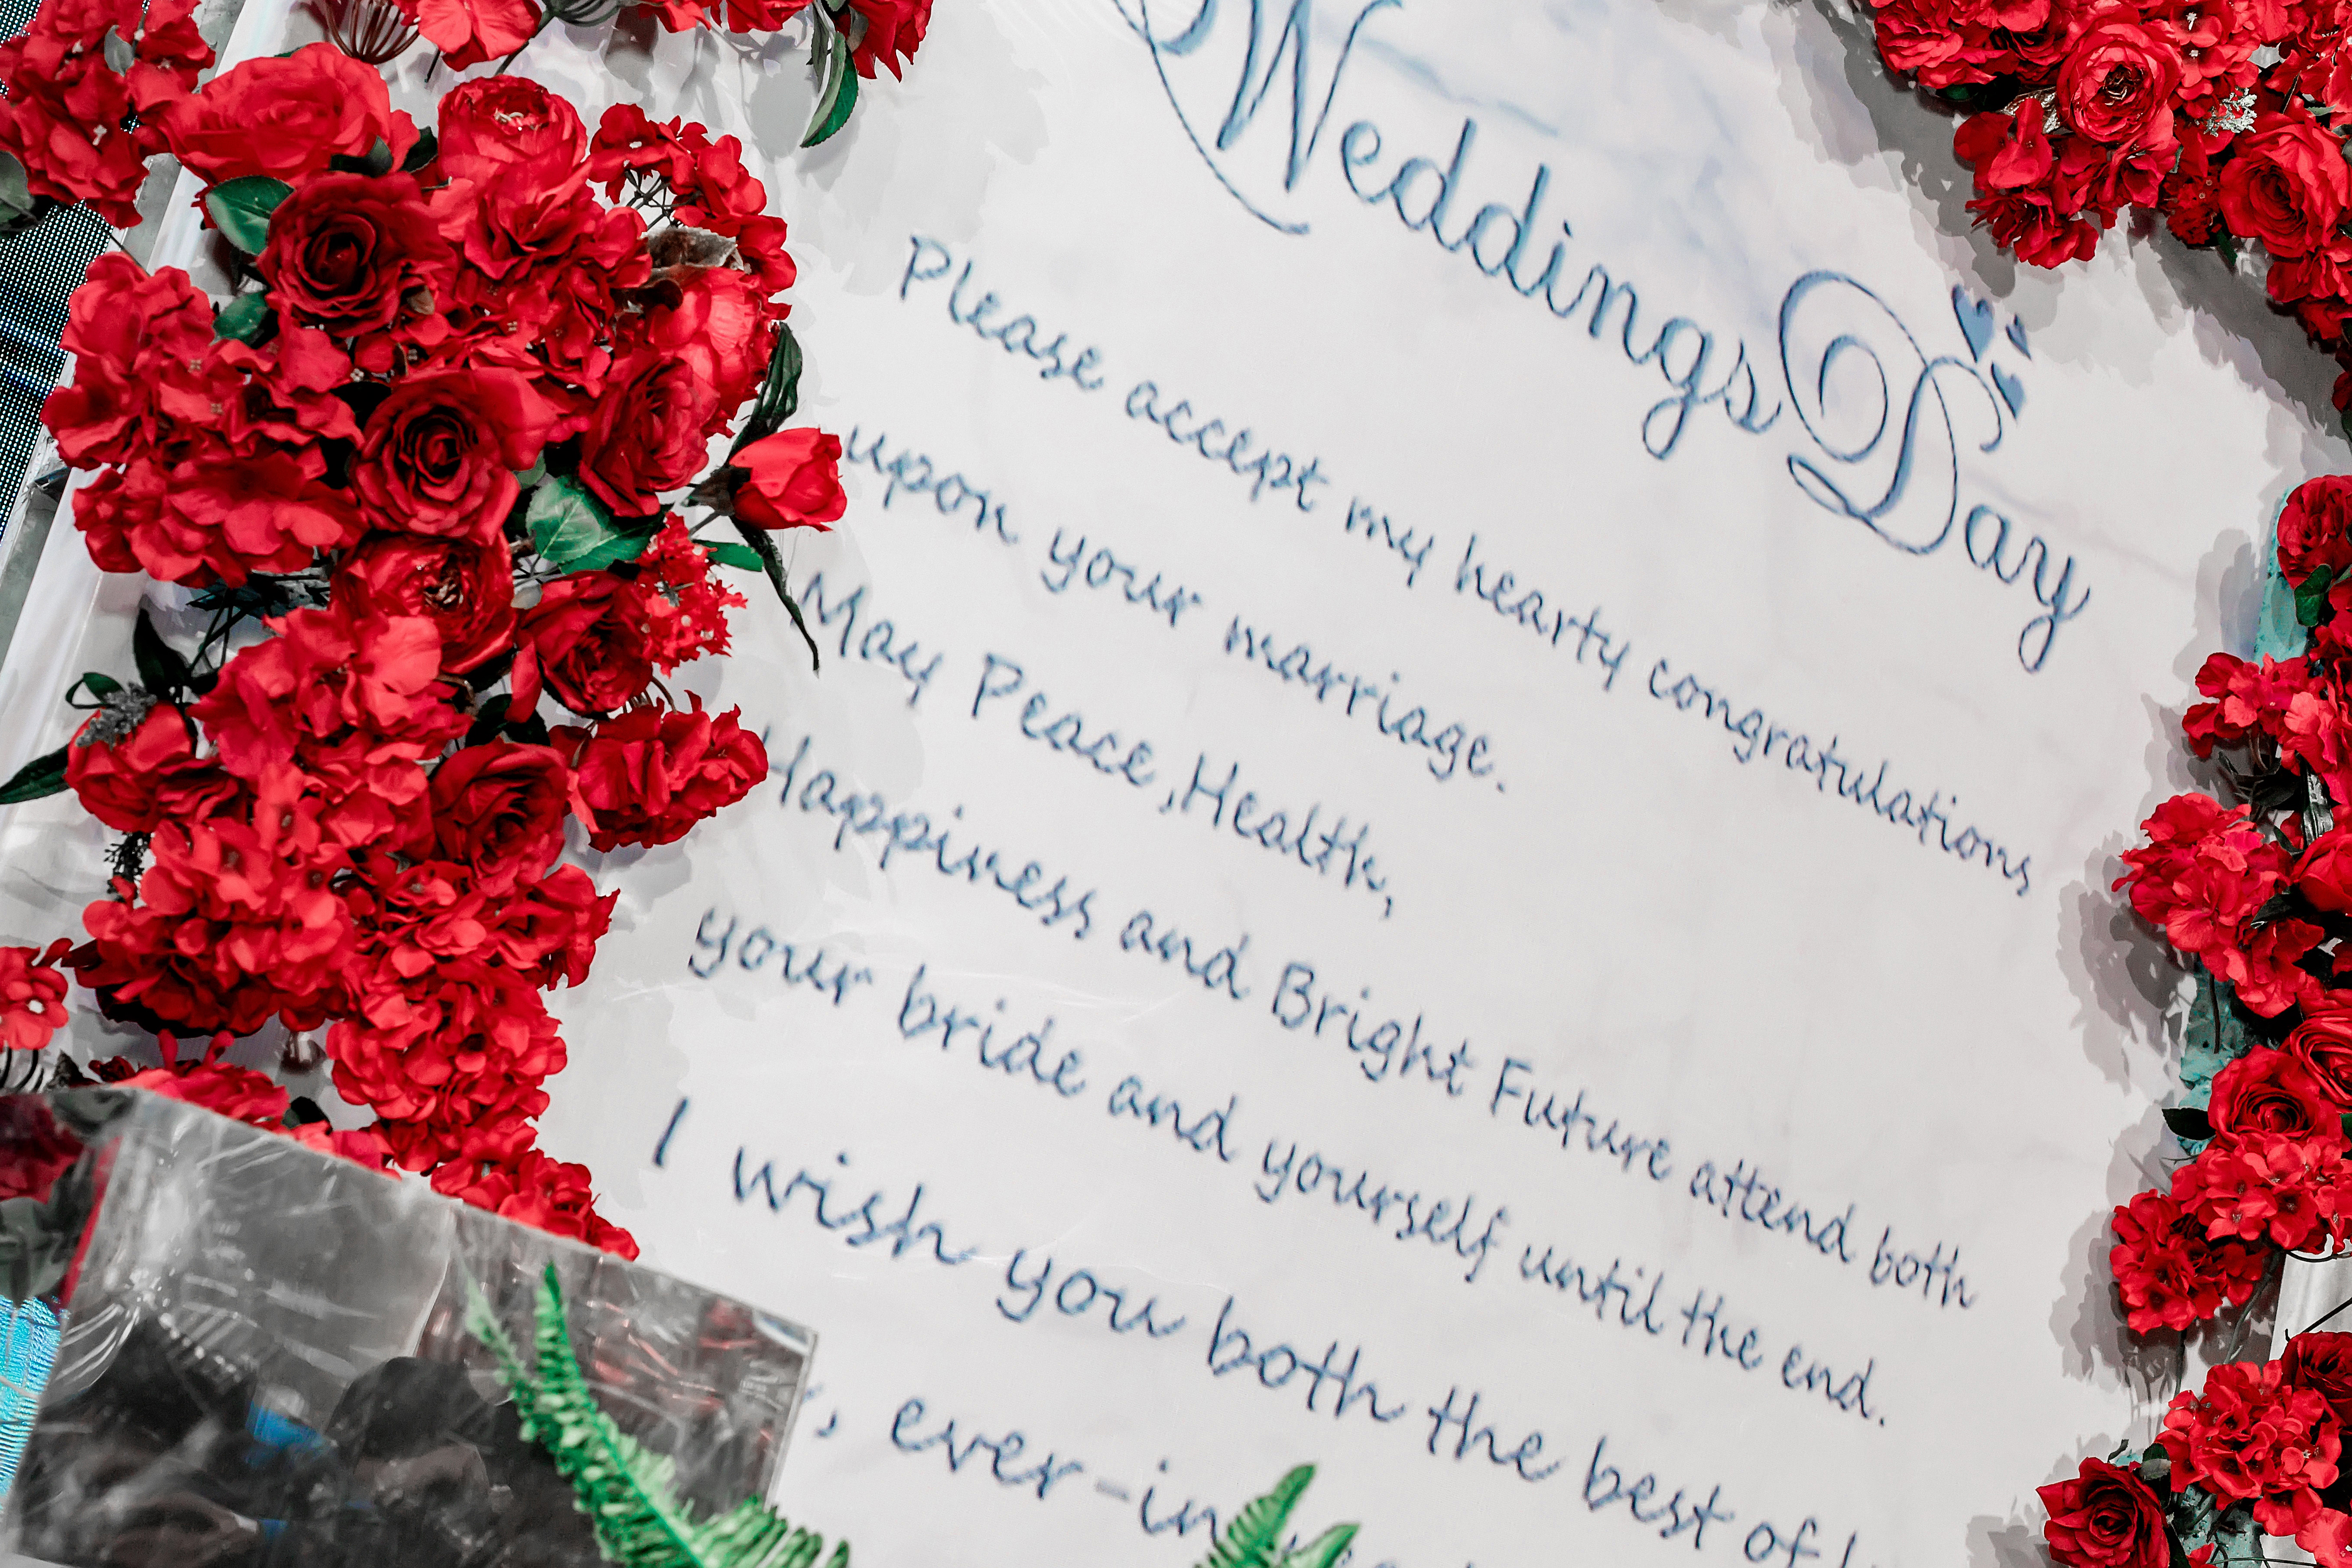 Weddings Day
Please accept my hearty congratulations
upon your marriage.
May Peace,Health,
Happiness and Bright Future attend both
your bride and yourself until the end.
I wish you both the best of
, ever-in